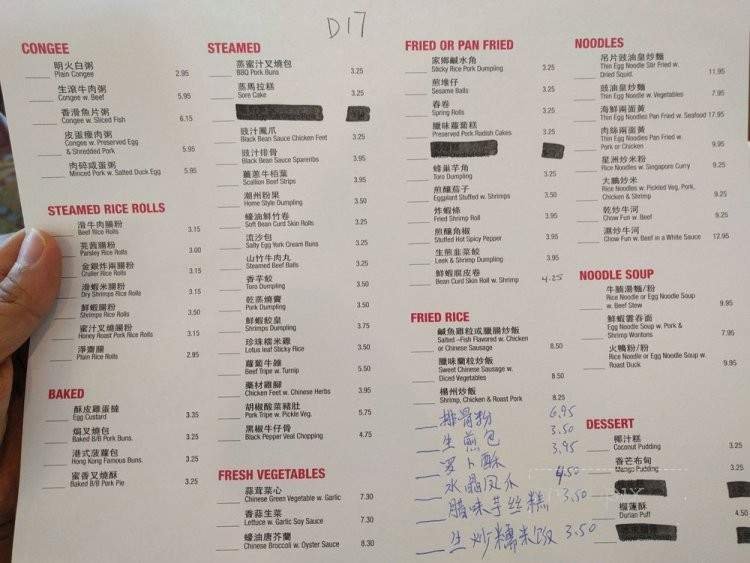 D17
CONGEE
明火白粥
Plain Congee 2.95
生滾牛肉粥
Congee w. Beef 5.95
香滑魚片粥
Congee w. Sliced Fish 6.15
皮蛋瘦肉粥
Congee w. Preserved Egg
& Shredded Pork 5.95
肉碎咸蛋粥
Minced Pork w. Salted Duck Egg 5.95
STEAMED RICE ROLLS
滑牛肉腸粉
Beef Rice Rolls 3.15
芫茜腸粉
Parsley Rice Rolls 3.00
金銀炸兩腸粉
Cruller Rice Rolls 3.15
滑蝦米腸粉
Dry Shrimps Rice Rolls 3.15
鮮蝦腸粉
Shrimps Rice Rolls 3.50
蜜汁叉燒腸粉
Honey Roast Pork Rice Rolls 3.15
淨齋腸
Plain Rice Rolls 2.95
BAKED
酥皮雞蛋撻
Egg Custard 3.25
焗叉燒包
Baked B/B Pork Buns. 3.25
港式菠蘿包
Hong Kong Famous Buns. 3.25
蜜香叉燒酥
Baked B/B Pork Pie 3.25
STEAMED
蒸蜜汁叉燒包
BBQ Pork Buns 3.25
蒸馬拉糕
Sore Cake 3.25
豉汁鳳爪
Black Bean Sauce Chicken Feet 3.25
豉汁排骨
Black Bean Sauce Spareribs 3.95
薑蔥牛栢葉
Scallion Beef Strips 3.95
潮州粉果
Home Style Dumpling 3.50
蠔油鮮竹卷
Soft Bean Curd Skin Rolls 3.25
流沙包
Salty Egg York Cream Buns 3.25
山竹牛肉丸
Steamed Beef Balls 3.25
香芋餃
Toro Dumpling 3.50
乾蒸燒賣
Pork Dumpling 3.50
鮮蝦餃皇
Shrimps Dumpling 3.75
珍珠糯米雞
Lotus leaf Sticky Rice 3.50
蘿蔔牛雜
Beef Tripe w. Turnip 5.50
藥材雞腳
Chicken Feet w. Chinese Herbs 3.95
胡椒酸菜豬肚
Pork Tripe w. Pickle Veg. 5.75
黑椒牛仔骨
Black Pepper Veal Chopping 4.75
FRESH VEGETABLES
蒜茸菜心
Chinese Green Vegetable w. Garlic 7.30
香蒜生菜
Lettuce w. Garlic Soy Sauce 7.30
蠔油唐芥蘭
Chinese Broccoli w. Oyster Sauce 8.30
FRIED OR PAN FRIED
家鄉鹹水角
Sticky Rice Pork Dumpling 3.25
煎堆仔
Sesame Balls 3.25
春卷
Spring Rolls 3.25
臘味蘿蔔糕
Preserved Pork Radish Cakes 3.25
蜂巢芋角
Toro Dumpling 3.25
煎釀茄子
Eggplant Stuffed w. Shrimps 3.50
炸蝦條
Fried Shrimp Roll 3.95
煎釀角椒
Stuffed Hot Spicy Pepper 3.95
生煎韭菜餃
Leek & Shrimp Dumpling 3.95
鮮蝦腐皮卷
Bean Curd Skin Roll w. Shrimp 4.25
FRIED RICE
鹹魚雞粒或臘腸炒飯
Salted -Fish Flavored w. Chicken
or Chinese Sausage 8.50
臘味蘭粒炒飯
Sweet Chinese Sausage w.
Diced Vegetables 8.50
楊州炒飯
Shrimp, Chicken & Roast Pork 8.25
排骨粉 6.95
生煎包 3.50
罗卜酥 3.95
水晶凤爪 4.50
腊味芋丝糕 3.50
生炒糯米饭 3.50
NOODLES
吊片豉油皇炒麵
Thin Egg Noodle Stir Fried w.
Dried Squid. 11.95
豉油皇炒麵
Thin Egg Noodle w. Vegetables 7.95
海鮮兩面黃
Thin Egg Noodles Pan Fried w. Seafood 17.95
肉絲兩面黃
Thin Egg Noodles Pan Fried w.
Pork or Chicken 9.95
星洲炒米粉
Rice Noodles w. Singapore Curry 9.25
大鵬炒米
Rice Noodles w. Pickled Veg, Pork,
Chicken & Shrimp 9.25
乾炒牛河
Chow Fun w. Beef 9.25
濕炒牛河
Chow Fun w. Beef in a White Sauce 12.95
NOODLE SOUP
牛腩湯麵/粉
Rice Noodle or Egg Noodle Soup
w. Beef Stew 9.95
鮮蝦雲吞面
Egg Noodle Soup w. Pork &
Shrimp Wontons 7.95
火鴨粉/粉
Rice Noodle or Egg Noodle Soup w.
Roast Duck 9.95
DESSERT
椰汁糕
Coconut Pudding 3.25
香芒布甸
Mango Pudding 3.25
榴蓮酥
Durian Puff 4.50